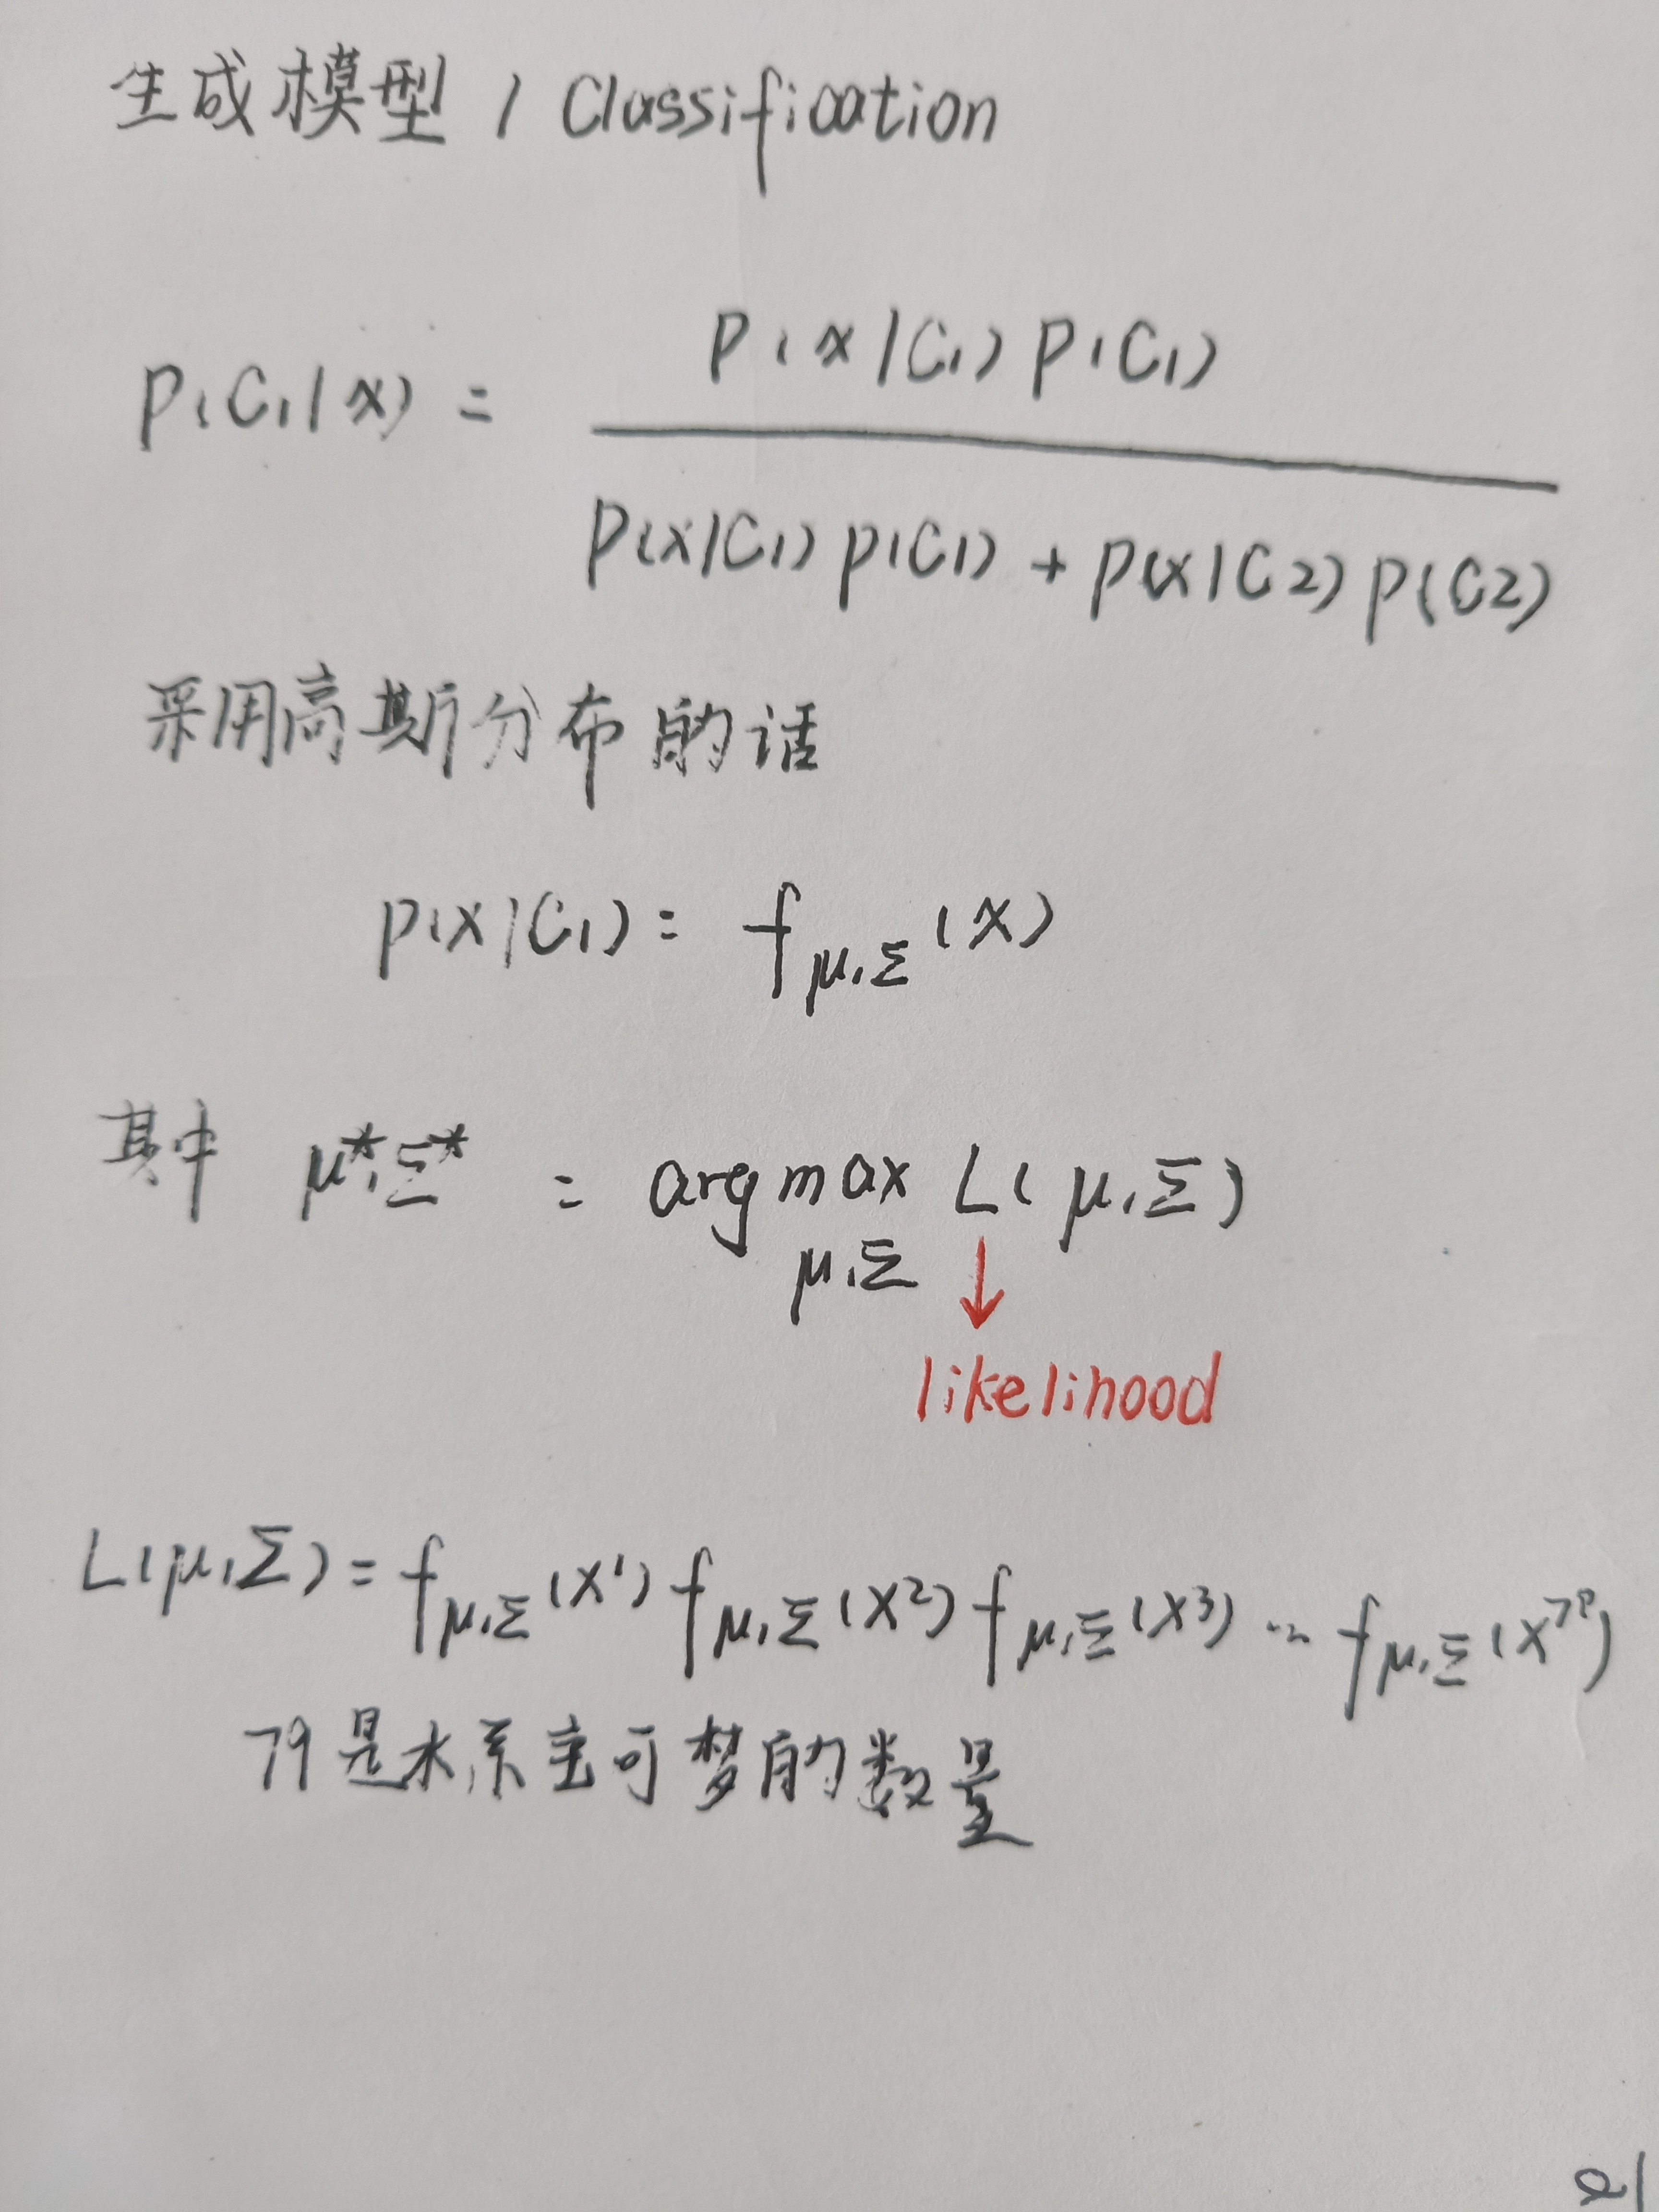 生成模型 / Classification
P(C1|x) = P(x|C1) P(C1) / P(x|C1) P(C1) + P(x|C2) P(C2)
采用高斯分布的话
P(x|C1) = f μ,Σ (x)
其中 μ*,Σ* = arg max L(μ,Σ)
μ,Σ ↓
likelihood
L(μ,Σ) = f μ,Σ (x¹) f μ,Σ (x²) f μ,Σ (x³) ... f μ,Σ (x⁷⁹)
79是水系宝可梦的数量